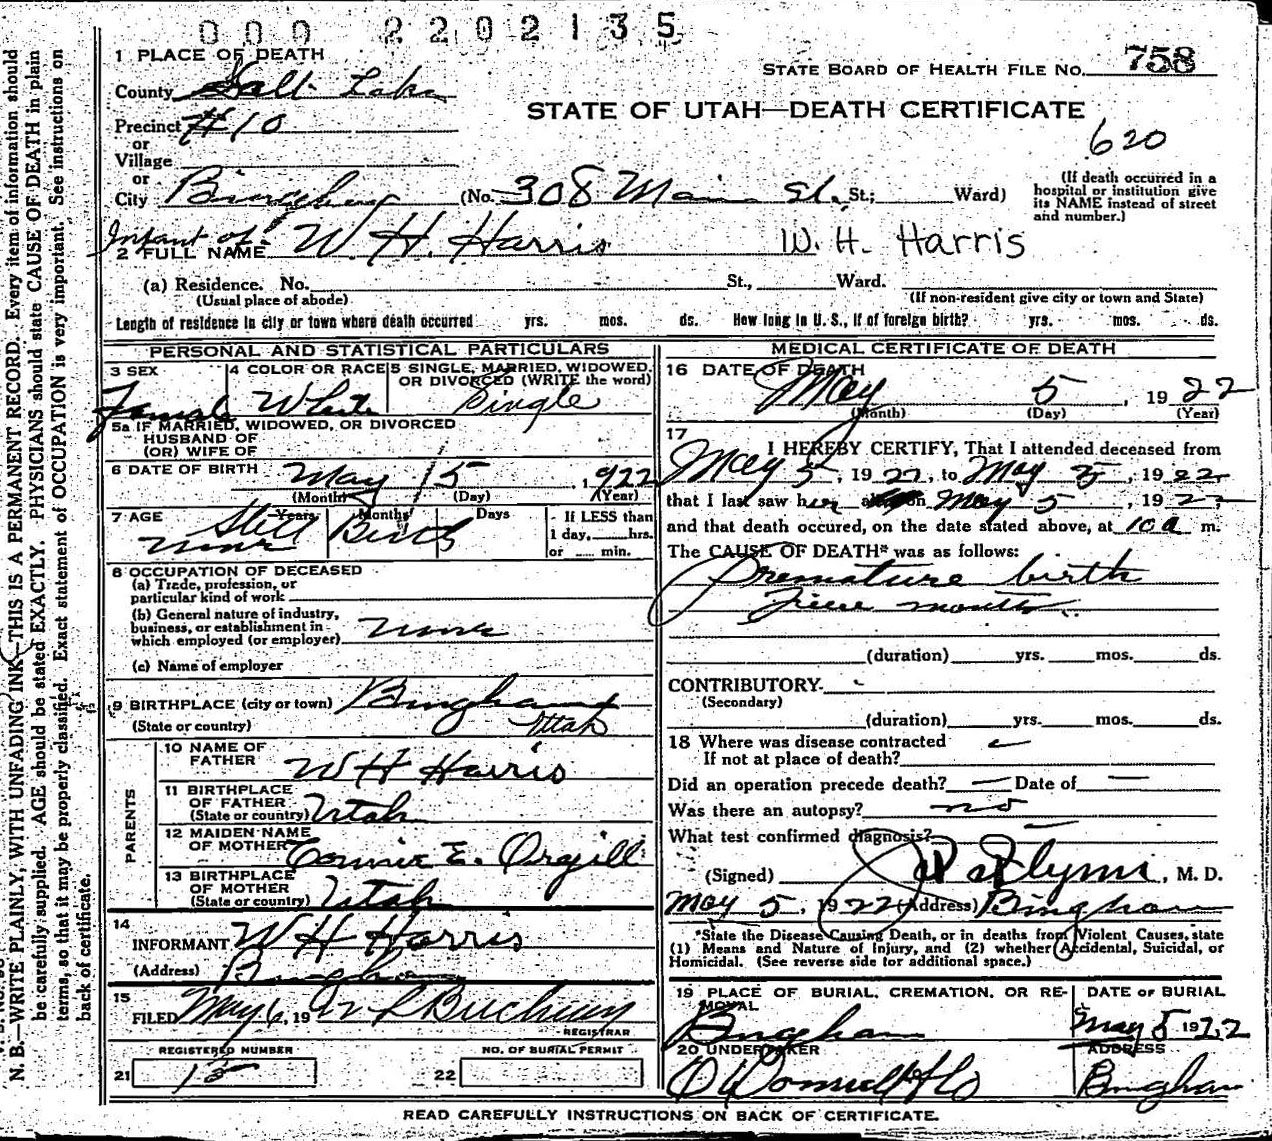 000 2202135
1 PLACE OF DEATH
STATE BOARD OF HEALTH FILE NO. 758
County Salt Lake
STATE OF UTAH—DEATH CERTIFICATE
Precinct #10
620
or
Village
or
City Bingham (No. 308 Main St. St.; Ward)
(If death occurred in a
hospital or institution give
its NAME instead of street
and number.)
Infant of
2 FULL NAME W. H. Harris W. H. Harris
(a) Residence. No. St., Ward.
(Usual place of abode) (If non-resident give city or town and State)
Length of residence in city or town where death occurred yrs. mos. ds. How long in U. S., if of foreign birth? yrs. mos. ds.
PERSONAL AND STATISTICAL PARTICULARS
3 SEX 4 COLOR OR RACE 5 SINGLE, MARRIED, WIDOWED,
OR DIVORCED (WRITE the word)
Female White Single
5a IF MARRIED, WIDOWED, OR DIVORCED
HUSBAND OF
(OR) WIFE OF
6 DATE OF BIRTH May 5 1922
(Month) (Day) (Year)
7 AGE Years Months Days If LESS than
Still Birth 1 day, hrs.
none or min.
8 OCCUPATION OF DECEASED
(a) Trade, profession, or
particular kind of work
(b) General nature of industry,
business, or establishment in
which employed (or employer) none
(c) Name of employer
9 BIRTHPLACE (city or town) Bingham
(State or country) Utah
PARENTS
10 NAME OF
FATHER W H Harris
11 BIRTHPLACE
OF FATHER
(State or country) Utah
12 MAIDEN NAME
OF MOTHER Connie E. Orgill
13 BIRTHPLACE
OF MOTHER
(State or country) Utah
14
INFORMANT W H Harris
(Address) Bingham
15
FILED May 6, 19 Buchanan
REGISTRAR
REGISTERED NUMBER NO. OF BURIAL PERMIT
21 15 22
MEDICAL CERTIFICATE OF DEATH
16 DATE OF DEATH
May 5, 1922
(Month) (Day) (Year)
17
I HEREBY CERTIFY, That I attended deceased from
May 5, 1922, to May 5, 1922
that I last saw her on May 5, 1922
and that death occured, on the date stated above, at 10 a m.
The CAUSE OF DEATH* was as follows:
Premature birth
months
(duration) yrs. mos. ds.
CONTRIBUTORY.
(Secondary)
(duration) yrs. mos. ds.
18 Where was disease contracted
If not at place of death?
Did an operation precede death? — Date of —
Was there an autopsy? no
What test confirmed diagnosis?
(Signed) Flynn, M. D.
May 5, 1922 (Address) Bingham
*State the Disease Causing Death, or in deaths from Violent Causes, state
(1) Means and Nature of Injury, and (2) whether Accidental, Suicidal, or
Homicidal. (See reverse side for additional space.)
19 PLACE OF BURIAL, CREMATION, OR RE-
MOVAL
Bingham
DATE OF BURIAL
May 5 1922
20 UNDERTAKER
O'Donnell & Co
ADDRESS
Bingham
READ CAREFULLY INSTRUCTIONS ON BACK OF CERTIFICATE.
N. B.—WRITE PLAINLY, WITH UNFADING INK—THIS IS A PERMANENT RECORD. Every item of information should
be carefully supplied. AGE should be stated EXACTLY. PHYSICIANS should state CAUSE OF DEATH in plain
terms, so that it may be properly classified. Exact statement of OCCUPATION is very important. See instructions on
back of certificate.